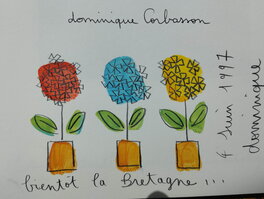 dominique Corbasson
4 Juin 1997
dominique
bientot la Bretagne ...